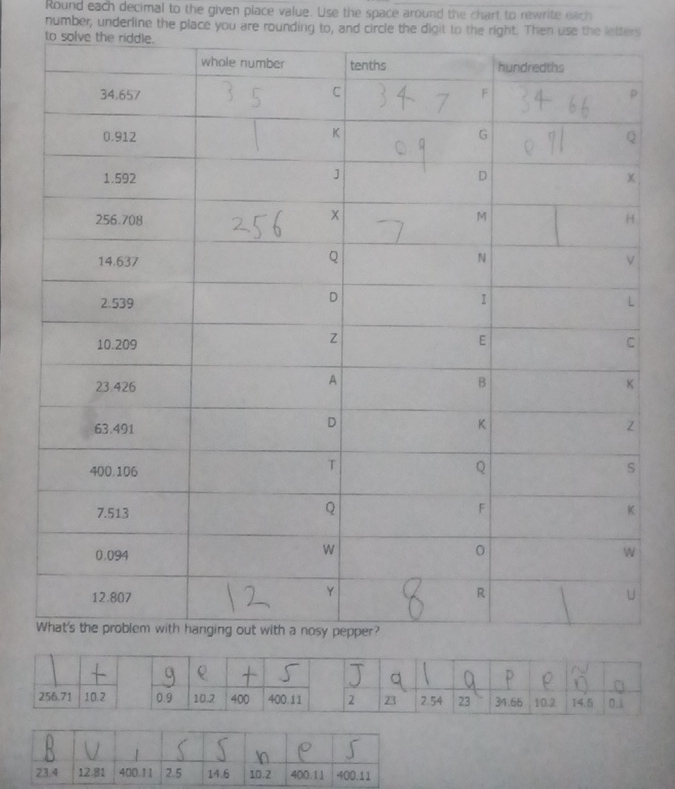 Round each decimal to the given place value. Use the space around the chart to rewrite each
number, underline the place you are rounding to, and circle the digit to the right. Then use the letters
to solve the riddle.
whole number tenths hundredths
34.657 35 C 34.7 F 34.66 P
0.912 1 K 09 G 0 91 Q
1.592 J D X
256.708 256 X 7 M 1 H
14.637 Q N V
2.539 D I L
10.209 Z E C
23.426 A B K
63.491 D K Z
400.106 T Q S
7.513 Q F K
0.094 W O W
12.807 12 Y 8 R 1 U
What's the problem with hanging out with a nosy pepper?
I t g e t s J a l a p e ñ o
256.71 10.2 0.9 10.2 400 400.11 2 23 2.54 23 34.66 10.2 14.6 0.1
B u i s s n e s
23.4 12.81 400.11 2.5 14.6 10.2 400.11 400.11